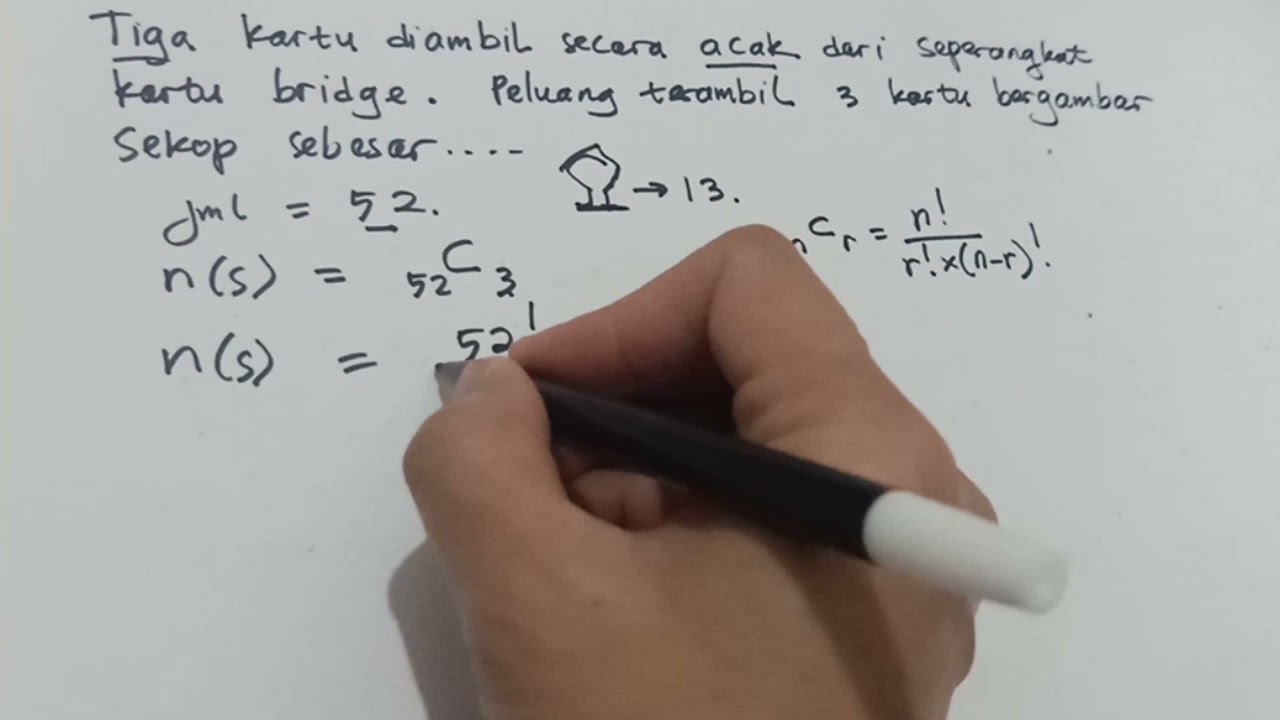 Tiga kartu diambil secara acak dari seperangkat
kartu bridge. Peluang terambil 3 kartu bergambar
Sekop sebesar....
→ 13.
jml = 52.
nCr = n! / r! × (n-r)!.
n(s) = 52C3
n(s) = 52!